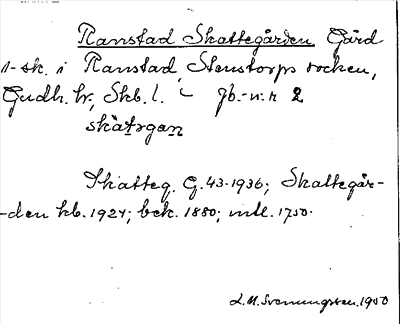 Ranstad Skattegården Gård
1. sk. i Ranstad, Stenstorps socken,
Gudh. hr, Skb. l. Jb.-n:r 2
skàtrgan
Skatteg. G. 43. 1936; Skattegår-
-den kb. 1924; bek. 1880; mtl. 1750.
L. M. Svenungsson. 1950